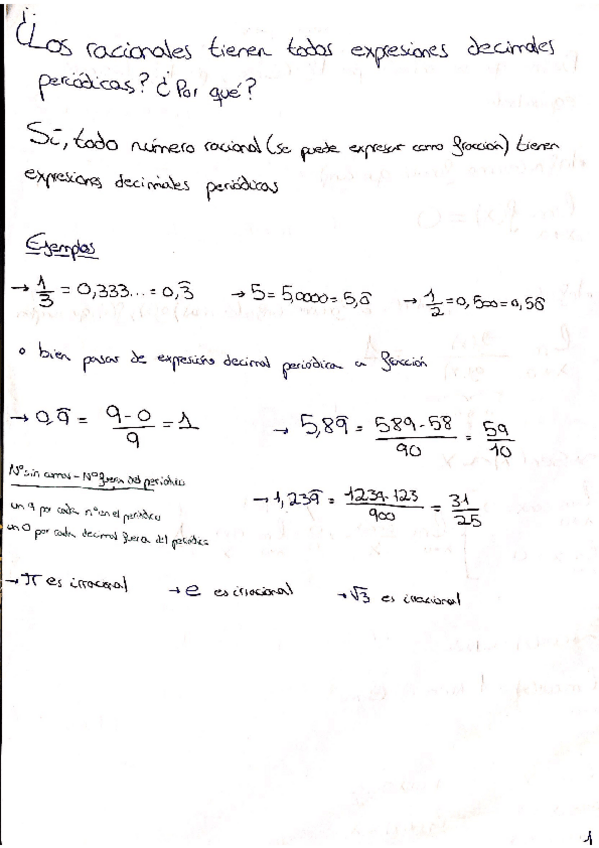 ¿Los racionales tienen todos expresiones decimales
periódicas? ¿Por qué?
Sí, todo número racional (se puede expresar como fracción) tienen
expresiones decimales periódicas
Ejemplos
→ 1/3 = 0,333... = 0,3̄ → 5 = 5,0000 = 5,0̄ → 1/2 = 0,500 = 0,50̄
o bien pasar de expresión decimal periódica a fracción
→ 0,9̄ = (9-0)/9 = 1 → 5,89̄ = (589-58)/90 = 59/10
Nº sin comas - Nº fuera del periódico
un 9 por cada nº en el periódico
un 0 por cada decimal fuera del periódico
→ 1,239̄ = (1239-123)/900 = 31/25
→ π es irracional → e es irracional → √3 es irracional
1